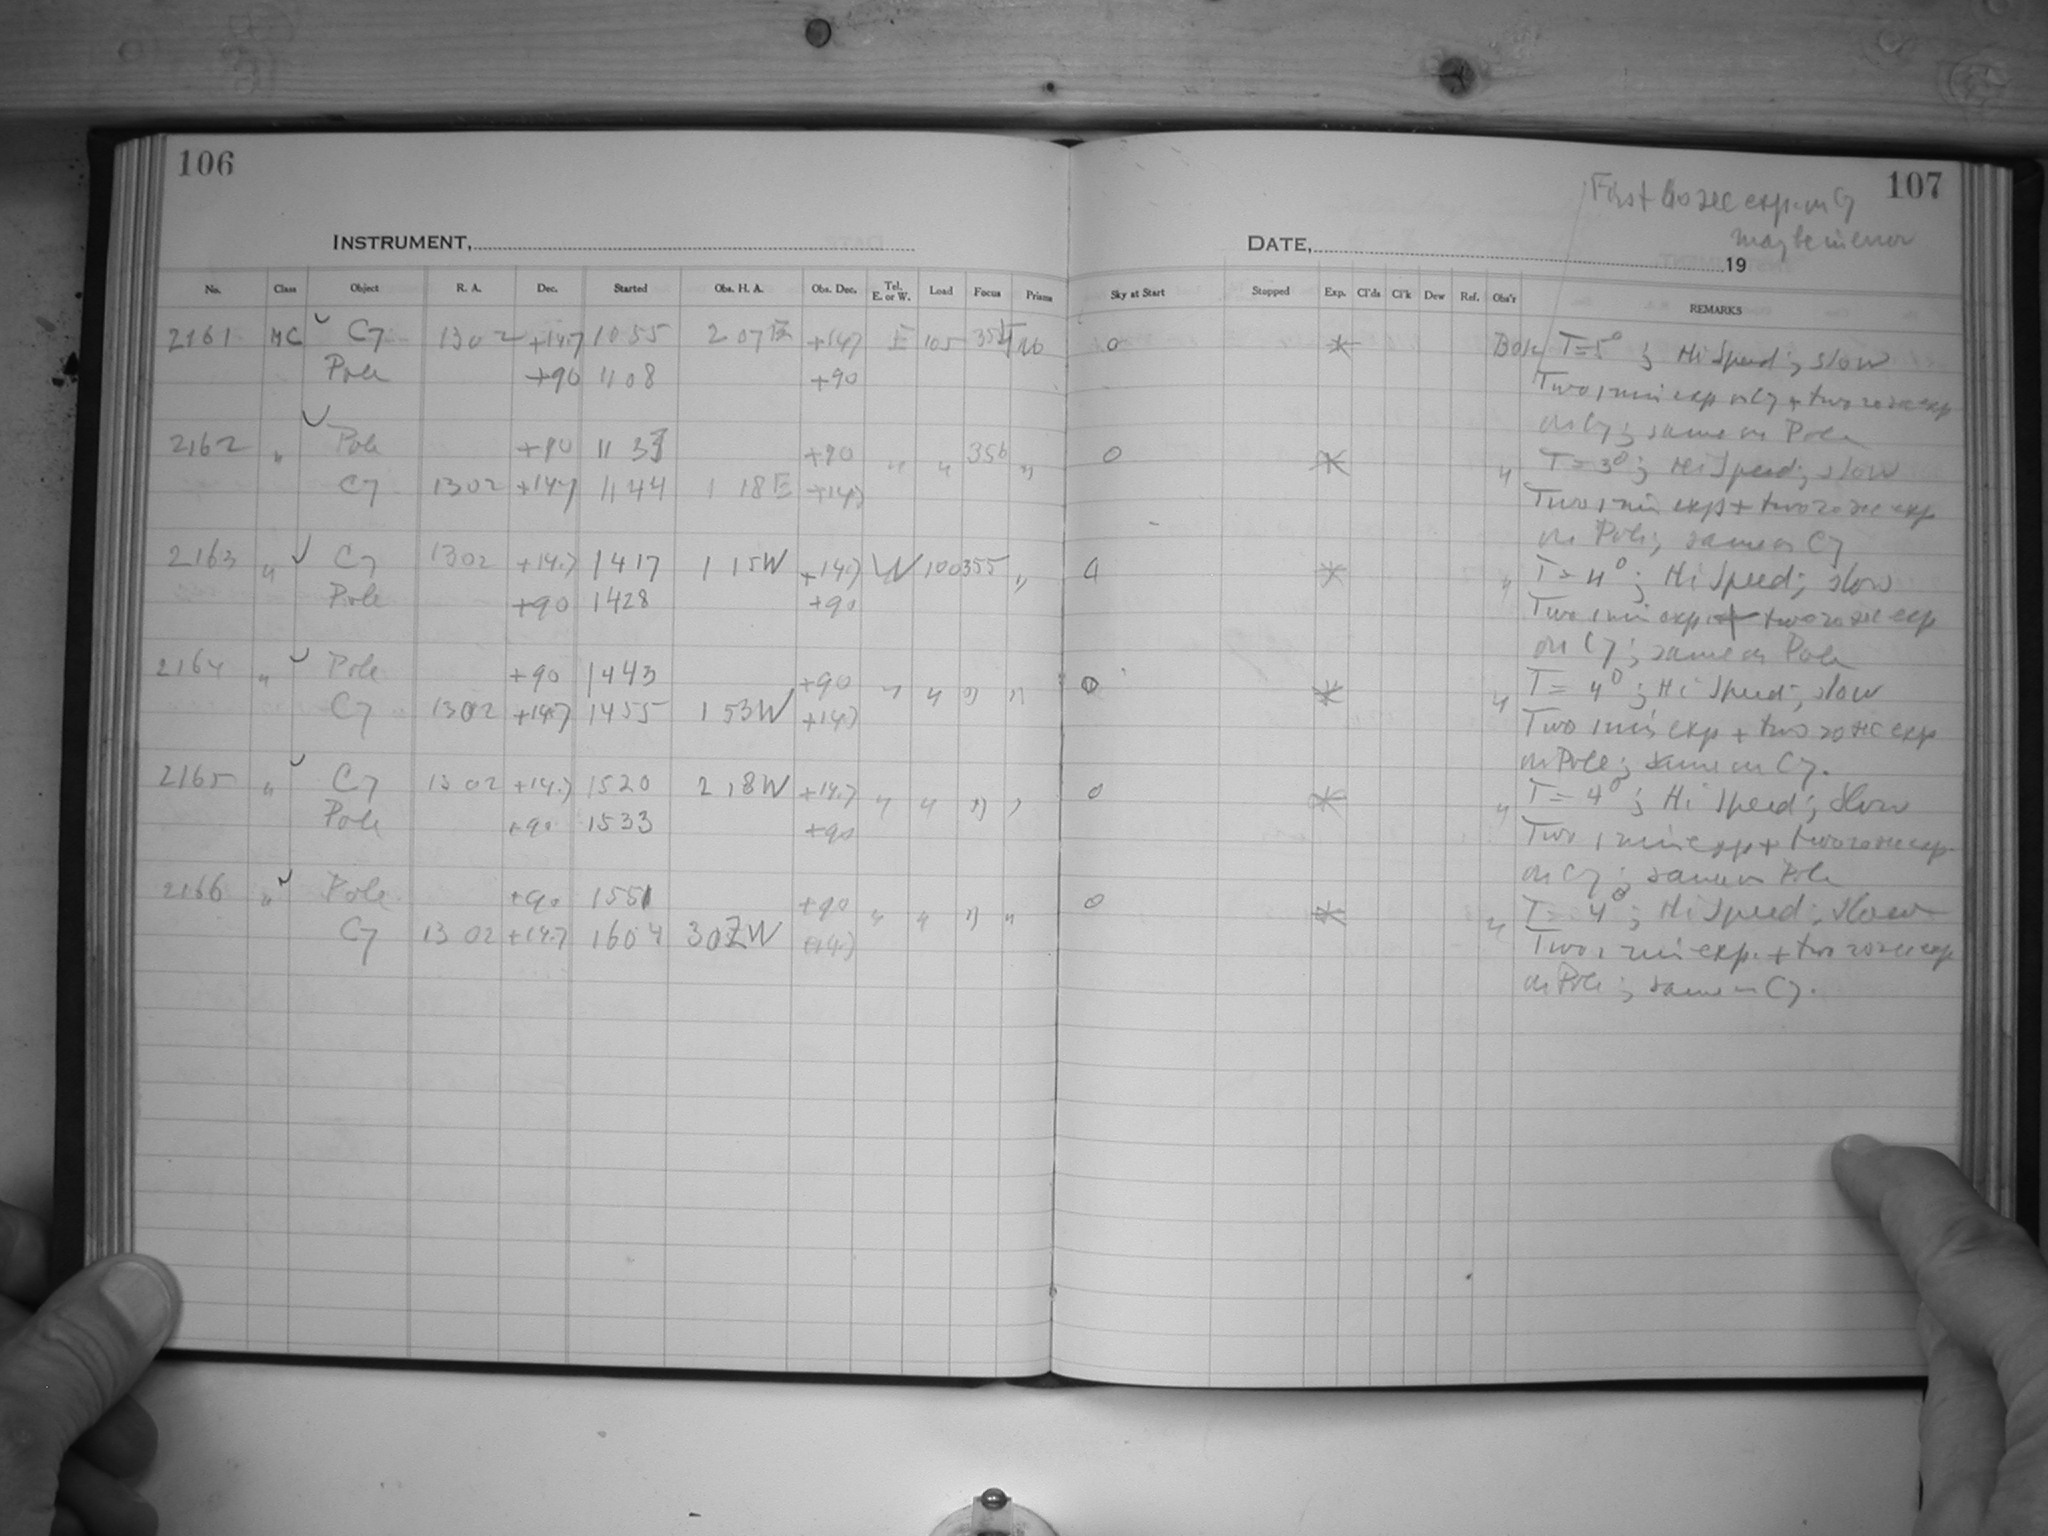 106
INSTRUMENT,
No. Class Object R. A. Dec. Started Obs. H. A. Obs. Dec. Tel. E. or W. Load Focus Prisms
2161 MC C7 1302 +14.7 1055 2 07 E +147 E 105 355 no
Pole +90 1108 +90
2162 " Pole +90 11 33 +90 " " 356 "
C7 1302 +14.7 1144 1 18 E +14.7
2163 " C7 1302 +14.7 1417 1 15W +14.7 W 100 355 "
Pole +90 1428 +90
2164 " Pole +90 1443 +90 " " " "
C7 1302 +14.7 1455 1 53W +14.7
2165 " C7 1302 +14.7 1520 2 18W +14.7 " " " "
Pole +90 1533 +90
2166 " Pole +90 1551 +90 " " " "
C7 13 02 +14.7 1604 302W +14.7
107
First sec exp. on C7
may be in error
DATE, 19
Sky at Start Stopped Exp. Cl'ds Cl'k Dew Ref. Obs'r REMARKS
0 * Bok T=5° ; Hi Speed; slow
Two 1 min exp on C7 + two 20 sec exp
on C7; same on Pole
0 * " T=3°; Hi Speed; slow
Two 1 min exp + two 20 sec exp
on Pole; same on C7
* " T= 4°; Hi Speed; slow
Two 1 min exp + two 20 sec exp
on C7; same on Pole
0 * " T= 4°; Hi Speed; slow
Two 1 min exp + two 20 sec exp
on Pole; same on C7.
0 * " T= 4°; Hi Speed; slow
Two 1 min exp + two 20 sec exp.
on C7; same on Pole
0 * " T= 4°; Hi Speed; slow
Two 1 min exp. + two 20 sec exp
on Pole; same on C7.